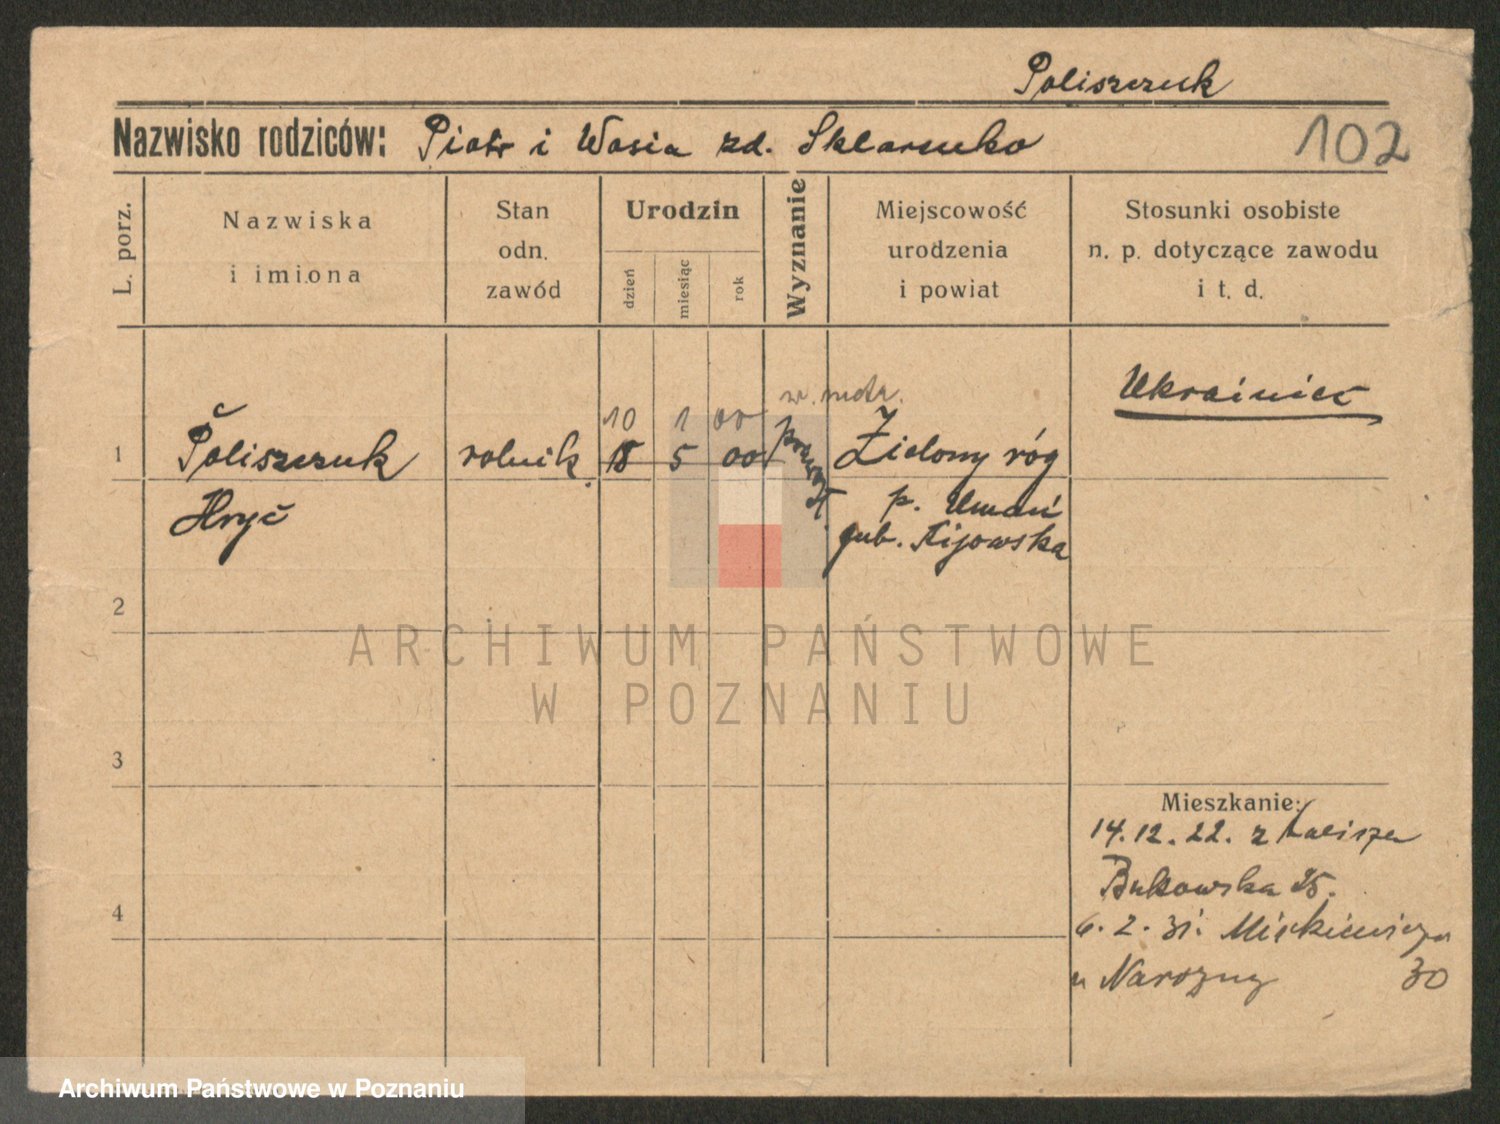 Poliszczuk
Nazwisko rodziców: Piotr i Wasia zd.
102
L. porz.
Nazwiska
i imiona
Stan
odn.
zawód
Urodzin
dzień
miesiąc
rok
Wyznanie
Miejscowość
urodzenia
i powiat
Stosunki osobiste
n. p. dotyczące zawodu
i t. d.
w. metr.
Ukrainiec
10 1 00
1 Poliszczuk rolnik 18 5 00 Zielony róg
Hryć p. Umań
gub. Kijowska
2
3
4
Mieszkanie:
14.12.22. z Kalisza
Bukowska 25.
6.2.31. Mickiewicza
u Narożny 30
ARCHIWUM PAŃSTWOWE
W POZNANIU
Archiwum Państwowe w Poznaniu